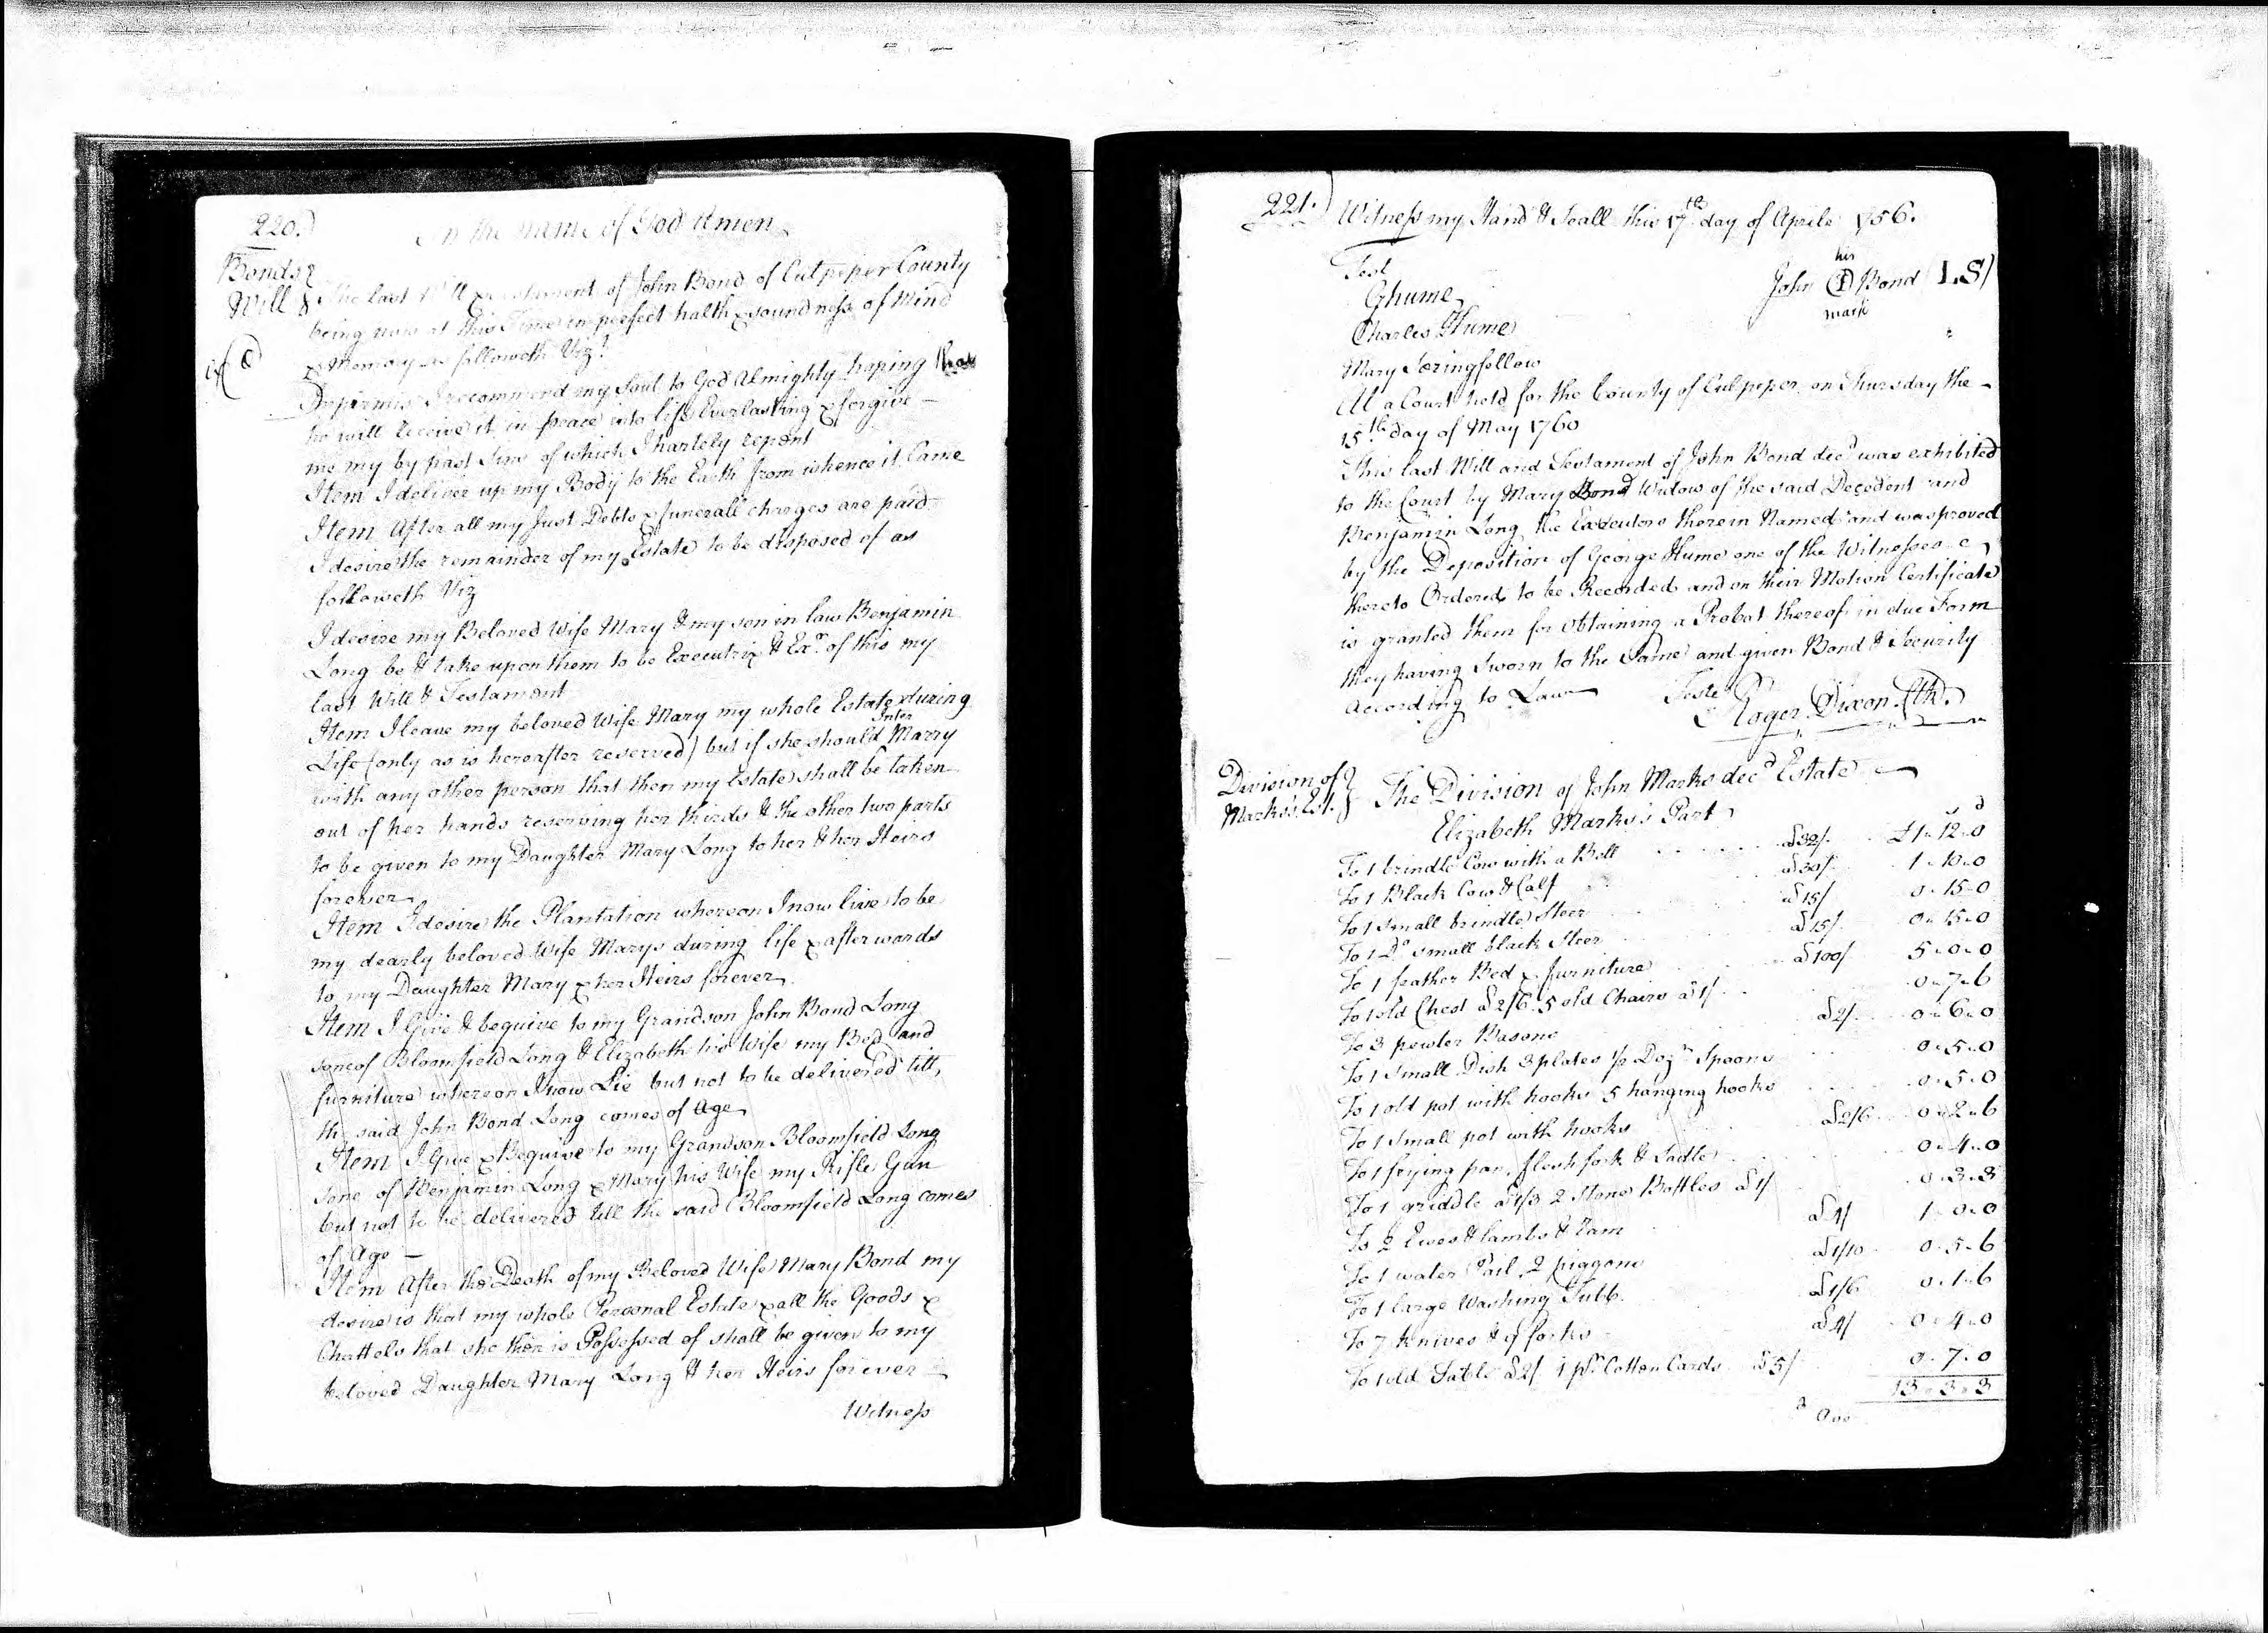 220.)
In the name of God Amen
Bonds
Will
The last Will & Testament of John Bond of Culpeper County
being now at this Time in perfect halth & soundness of Mind
& Memory as followeth Viz.t
Impirmis I recommend my Soul to God Almighty hoping that
he will receive it in peace into life Everlasting & forgive
me my by past Sins of which I hartely repent
Item I deliver up my Body to the Earth from whence it Came
Item After all my Just Debts & funerall charges are paid
I desire the remainder of my Estate to be disposed of as
followeth Viz
I desire my Beloved Wife Mary & my son in law Benjamin
Long be & take upon them to be Executrix & Ex.r of this my
last Will & Testament
Item I leave my beloved Wife Mary my whole Estate during
Life (only as is hereafter reserved) but if she should Inter Marry
with any other person that then my Estate shall be taken
out of her hands reserving her thirds & the other two parts
to be given to my Daughter Mary Long to her & her Heirs
forever
Item I desire the Plantation whereon I now live to be
my dearly beloved Wife Marys during life & afterwards
to my Daughter Mary & her Heirs forever
Item I Give & bequive to my Grandson John Bond Long
sone of Bloomfield Long & Elizabeth his Wife my Bed and
furniture whereon I now Lie but not to be delivered till
the said John Bond Long comes of Age
Item I Give & Bequive to my Grandson Bloomfield Long
sone of Benjamin Long & Mary his Wife my Rifle Gun
but not to be delivered till the said Bloomfield Long comes
of Age —
Item After the Death of my Beloved Wife Mary Bond my
desire is that my whole Personal Estate & all the Goods &
Chattels that she then is Possessed of shall be given to my
beloved Daughter Mary Long & her Heirs forever
Witness
221.)
Witness my Hand & Seall this 17th day of Aprile 1756.
Test
his
John (I) Bond (L.S)
mark
Ghume
Charles Hume
Mary Stringfellow
At a Court held for the County of Culpeper on Thursday the
15th day of May 1760
This last Will and Testament of John Bond decd was exhibited
to the Court by Mary Bond Widow of the said Decedent and
Benjamin Long the Executors therein Named and was proved
by the Deposition of George Hume one of the Witnesses
thereto Ordered to be Recorded and on their Motion Certificate
is granted them for obtaining a Probat thereof in due Form
they having Sworn to the Same and given Bond & Security
According to Law
Teste
Roger Dixon Clk.
Division of
Marks's Est.
The Division of John Marks decd Estate
Elizabeth Marks's Part
To 1 brindle Cow with a Bell a 32/. £1"12"0
To 1 Black Cow & Calf a 30/. 1"10"0
To 1 small brindle Steer a 15/ 0"15"0
To 1 Do small black Steer a 15/. 0"15"0
To 1 feather Bed & furniture a 100/ 5"0"0
To 1 old Chest a 2/6. 5 old Chairs a 1/ 0"7"6
To 3 pewter Basons a 2/ 0"6"0
To 1 Small Dish 3 plates ½ Dozn Spoons 0"5"0
To 1 old pot with hooks 5 hanging hooks 0"5"0
To 1 small pot with hooks a 2/6 0"2"6
To 1 frying pan, flesh fork & Ladle 0"4"0
To 1 griddle a 1/3 2 Stone Bottles a 1/ 0"3"3
To 2 Ewes & lambs & Ram a 4/ 1"0"0
To 1 water Pail 2 piggons a 1/10 0"5"6
To 1 large Washing Tubb. a 1/6 0"1"6
To 7 knives & 9 forks a 4/ 0"4"0
To 1 old Table a 2/ 1 pr. Cotton Cards a 5/ 0"7"0
13"3"3